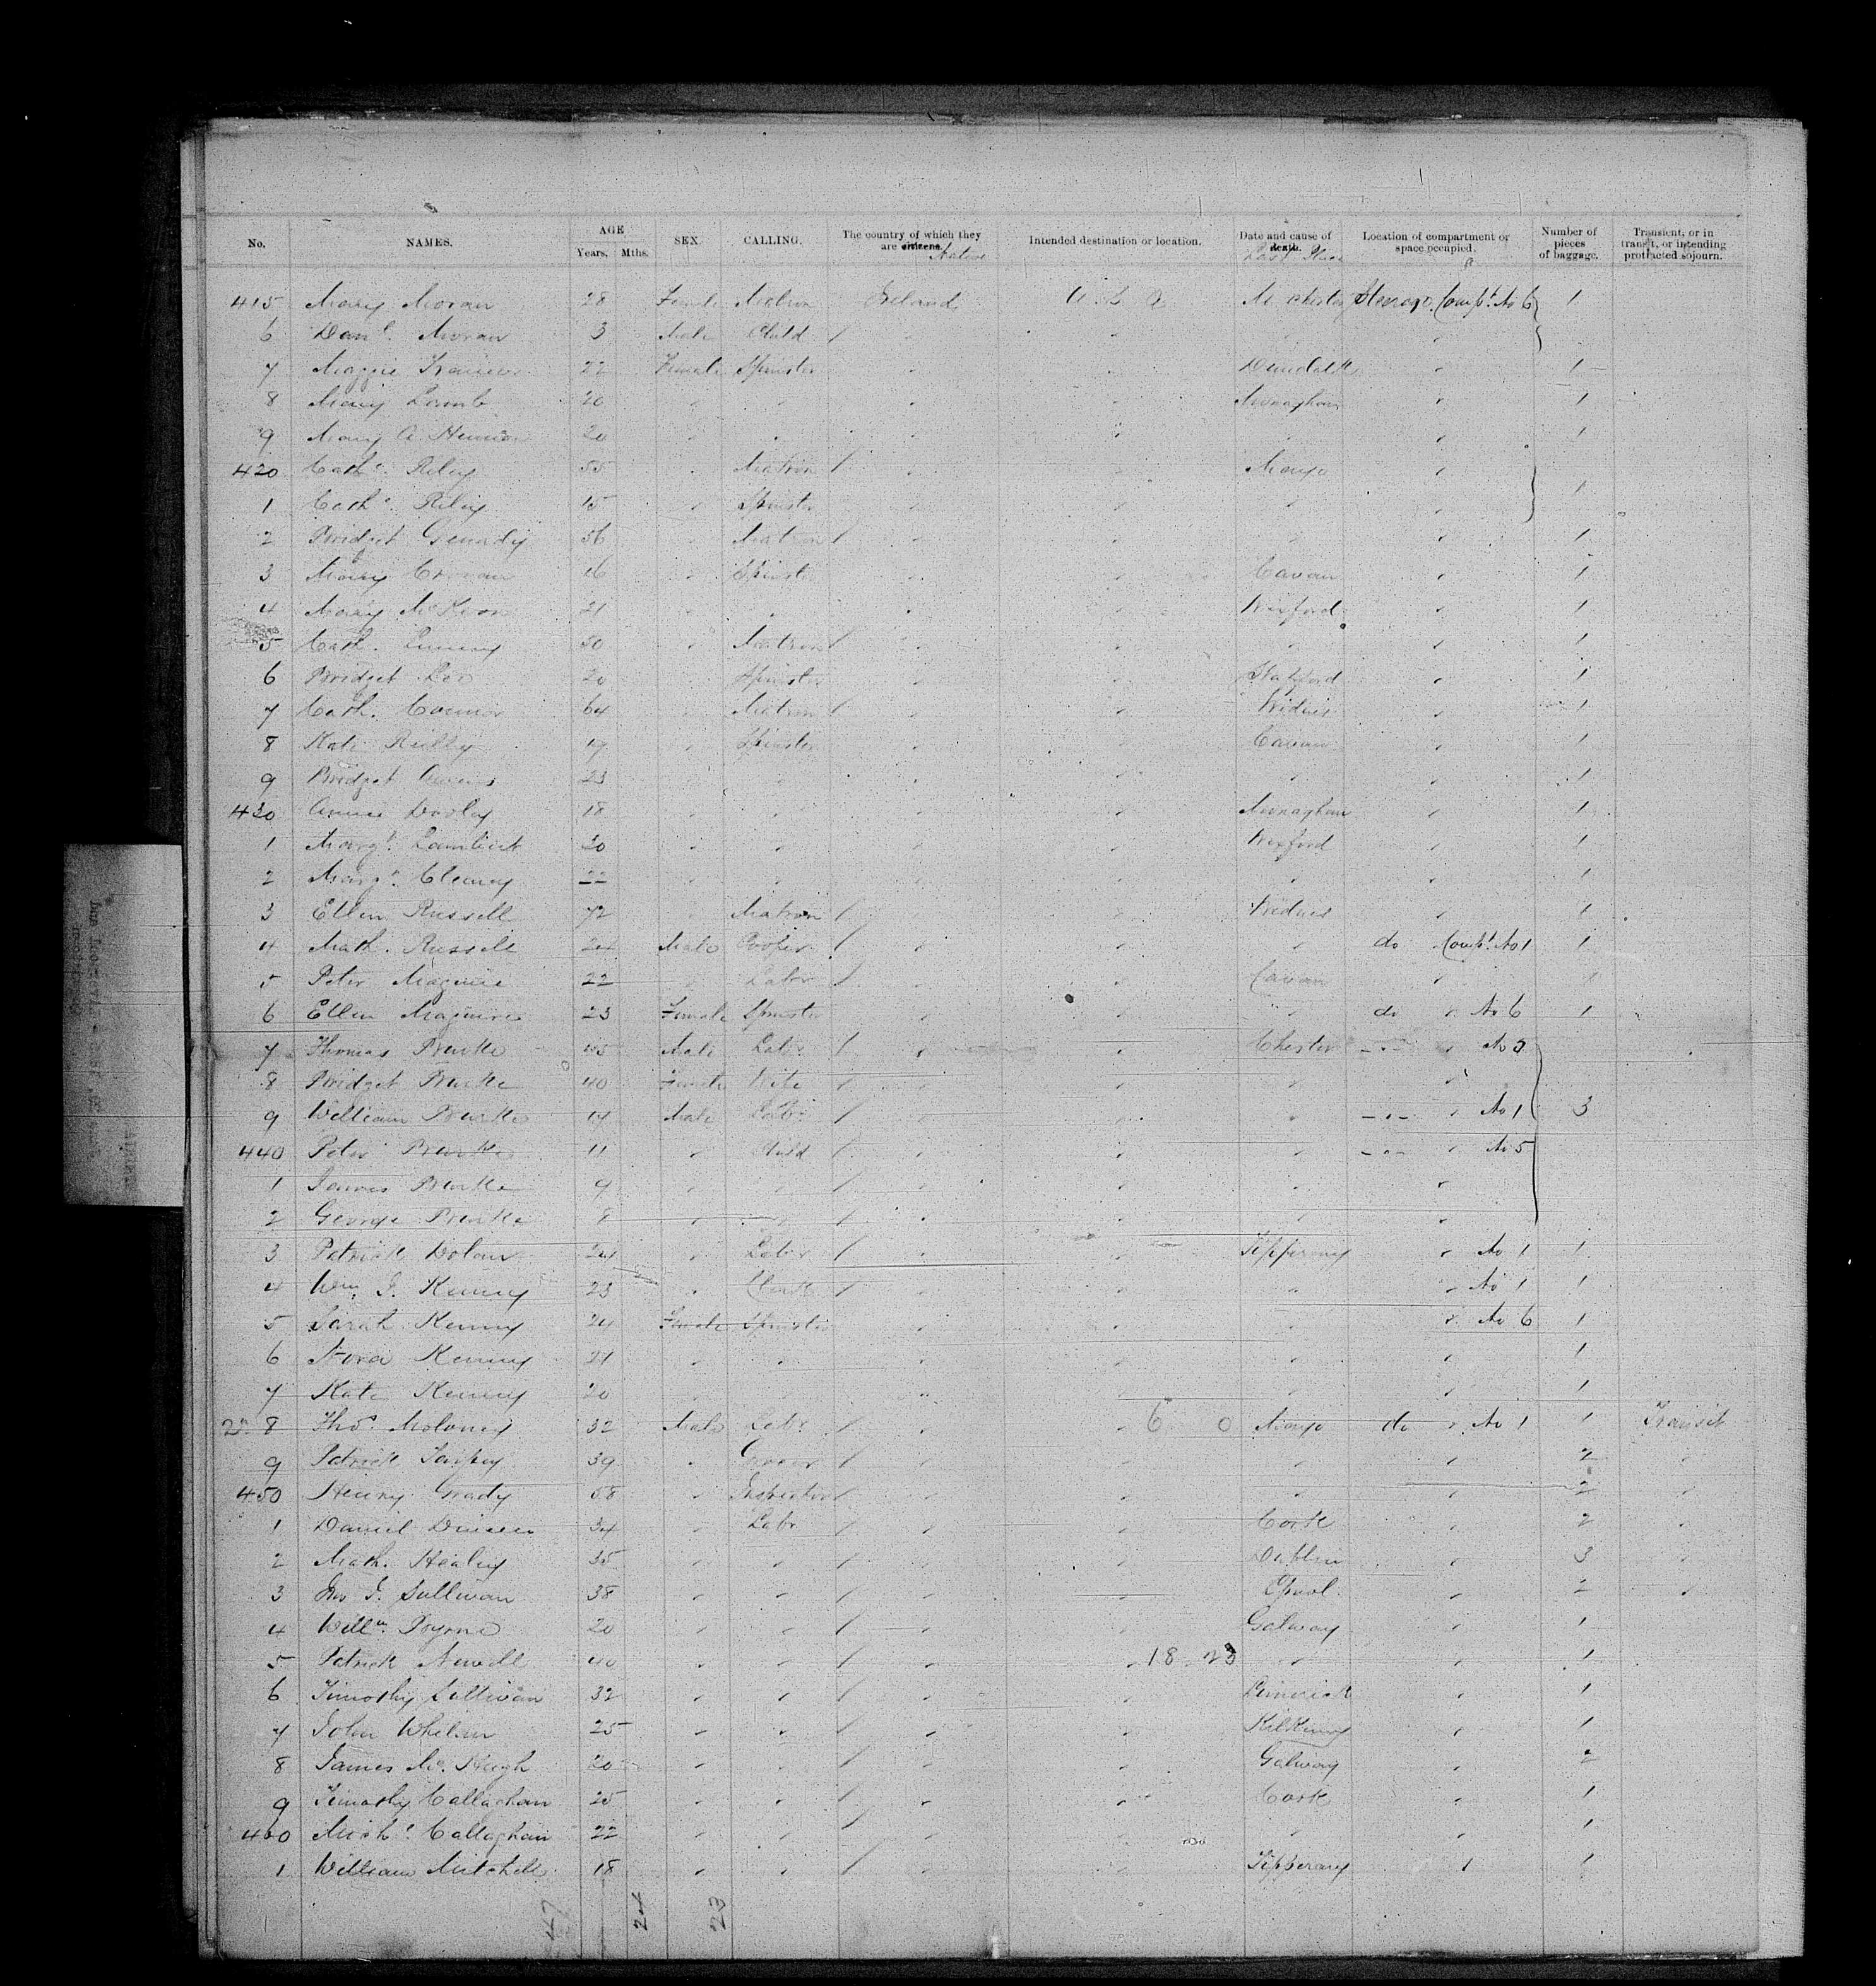 No. NAMES. AGE Years. Mths. SEX. CALLING. The country of which they are citizens. Native Intended destination or location. Date and cause of death. Last Place Location of compartment or space occupied. Number of pieces of baggage. Transient, or in transit, or intending protracted sojourn.
415 Mary Moran 28 Female Matron Ireland U. S. A M.chester Steerage Compt. No 6 1
6 Danl. Moran 3 Male Child / " " " "
7 Maggie 22 Female Spinster " " Dundalk " 1
8 Mary Lamb 20 " " " " Monaghan " 1
9 Mary A 20 " " " " " " 1
420 Cathe. Riley 55 " Matron / " " Mayo "
1 Cathe. Riley 15 " Spinster " " " " 1
2 Bridget 56 " Matron / " " " " 1
3 Mary 16 " Spinster " " Cavan " 1
4 Mary McKeon 21 " " " " Wexford " 1
5 Cath. 50 " Matron / " " " " 1
6 Bridget Leo 20 " Spinster " " " 1
7 Cath. Connor 64 " Matron / " " Widnes " 1
8 Kate Reilly 19 " Spinster " " Cavan " 1
9 Bridget Owens 23 " " " " " " 1
430 Annie Dooley 18 " " " " Monaghan " 1
1 Margt. Lambert 30 " " " " Wexford " 1
2 Margt. Cleary 22 " " " " " " 1
3 Ellen Russell 72 " Matron / " " Widnes " 1
4 Math. Russell 24 Male Cooper / " " " do Compt. No 1 1
5 Peter Maguire 22 " Labr / " " Cavan " 1
6 Ellen Maguire 23 Female Spinster " " " do " No 6 1
7 Thomas Burke 45 Male Labr. / " " Chester -"- " No 5
8 Bridget Burke 40 Female Wife " " " " "
9 William Burke 14 Male Labr / " " " -"- " No 1 3
440 Peter Burke 11 " Child / " " " -"- " No 5
1 James Burke 9 " " / " " " "
2 George Burke 8 " " / " " " "
3 Patrick Dolan 24 " Labr / " " Tipperary " No 1 1
4 Wm. J. Kenny 23 " Clerk / " " " " No 1 1
5 Sarah Kenny 24 Female Spinster " " " " No 6 1
6 Nora Kenny 21 " " " " " " 1
7 Kate Kenny 20 " " " " " 1
8 Thos. Moloney 32 Male Labr. / " " 6 0 Mayo do " No 1 1 Transit
9 Patrick 39 " Grocer / " " " " 2 "
450 Henry Grady 58 " Inspector / " " " " 2 "
1 Daniel Dineen 34 " Labr / " " Cork " 2 "
2 Math. Healey 35 " " / " " Dublin " 3 "
3 Jno J. Sullivan 38 " " / " " L'pool " 2 "
4 Willm. Byrne 20 " " / " " Galway " 1
5 Patrick Newell 40 " " / " " 18 23 " " 1
6 Timothy Sullivan 32 " " / " " Limerick " 1
7 John Whelan 25 " " / " " Kilkenny " 1
8 James McHugh 20 " " / " " Galway " 2
9 Timothy Callaghan 25 " " / " " Cork " 1
460 Michl. Callaghan 22 " " / " " " " 1
1 William Mitchell 18 " " / " " Tipperary " 1
47 24 23